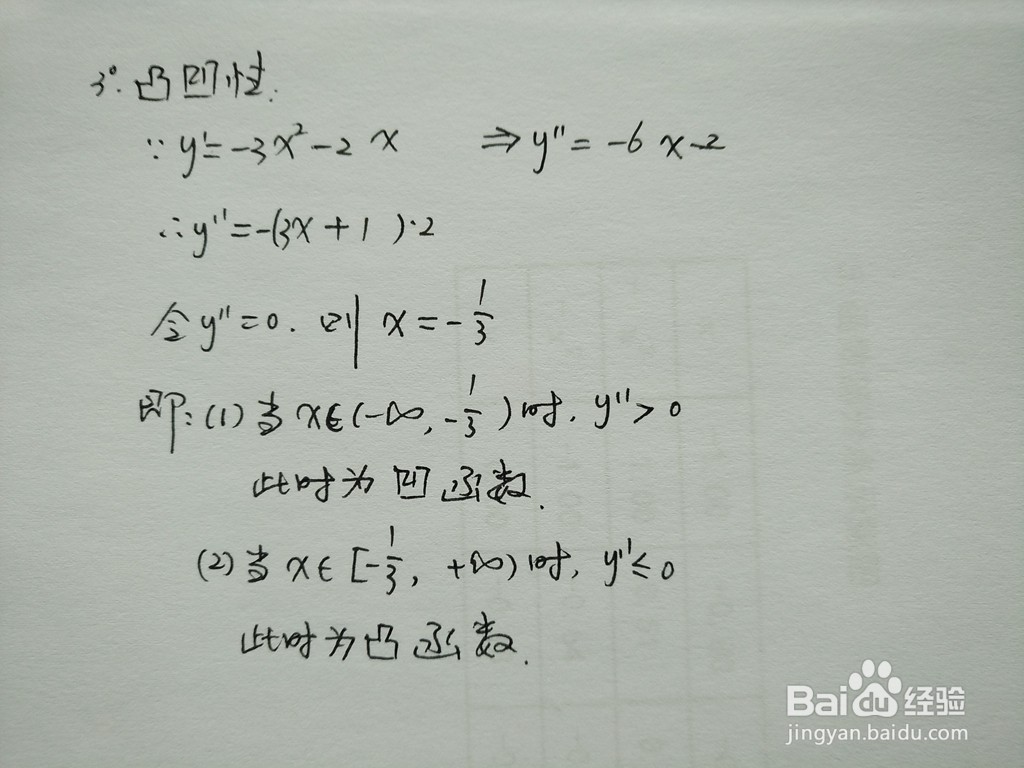 3°. 凸凹性.
∵ y'=-3x²-2x ⇒ y''=-6x-2
∴ y''=-(3x+1)·2
令y''=0. 则 x=-1/3
即:(1)当x∈(-∞,-1/3)时, y''>0
此时为凹函数.
(2)当x∈[-1/3, +∞)时, y''≤0
此时为凸函数.
Bai经验
jingyan.baidu.com